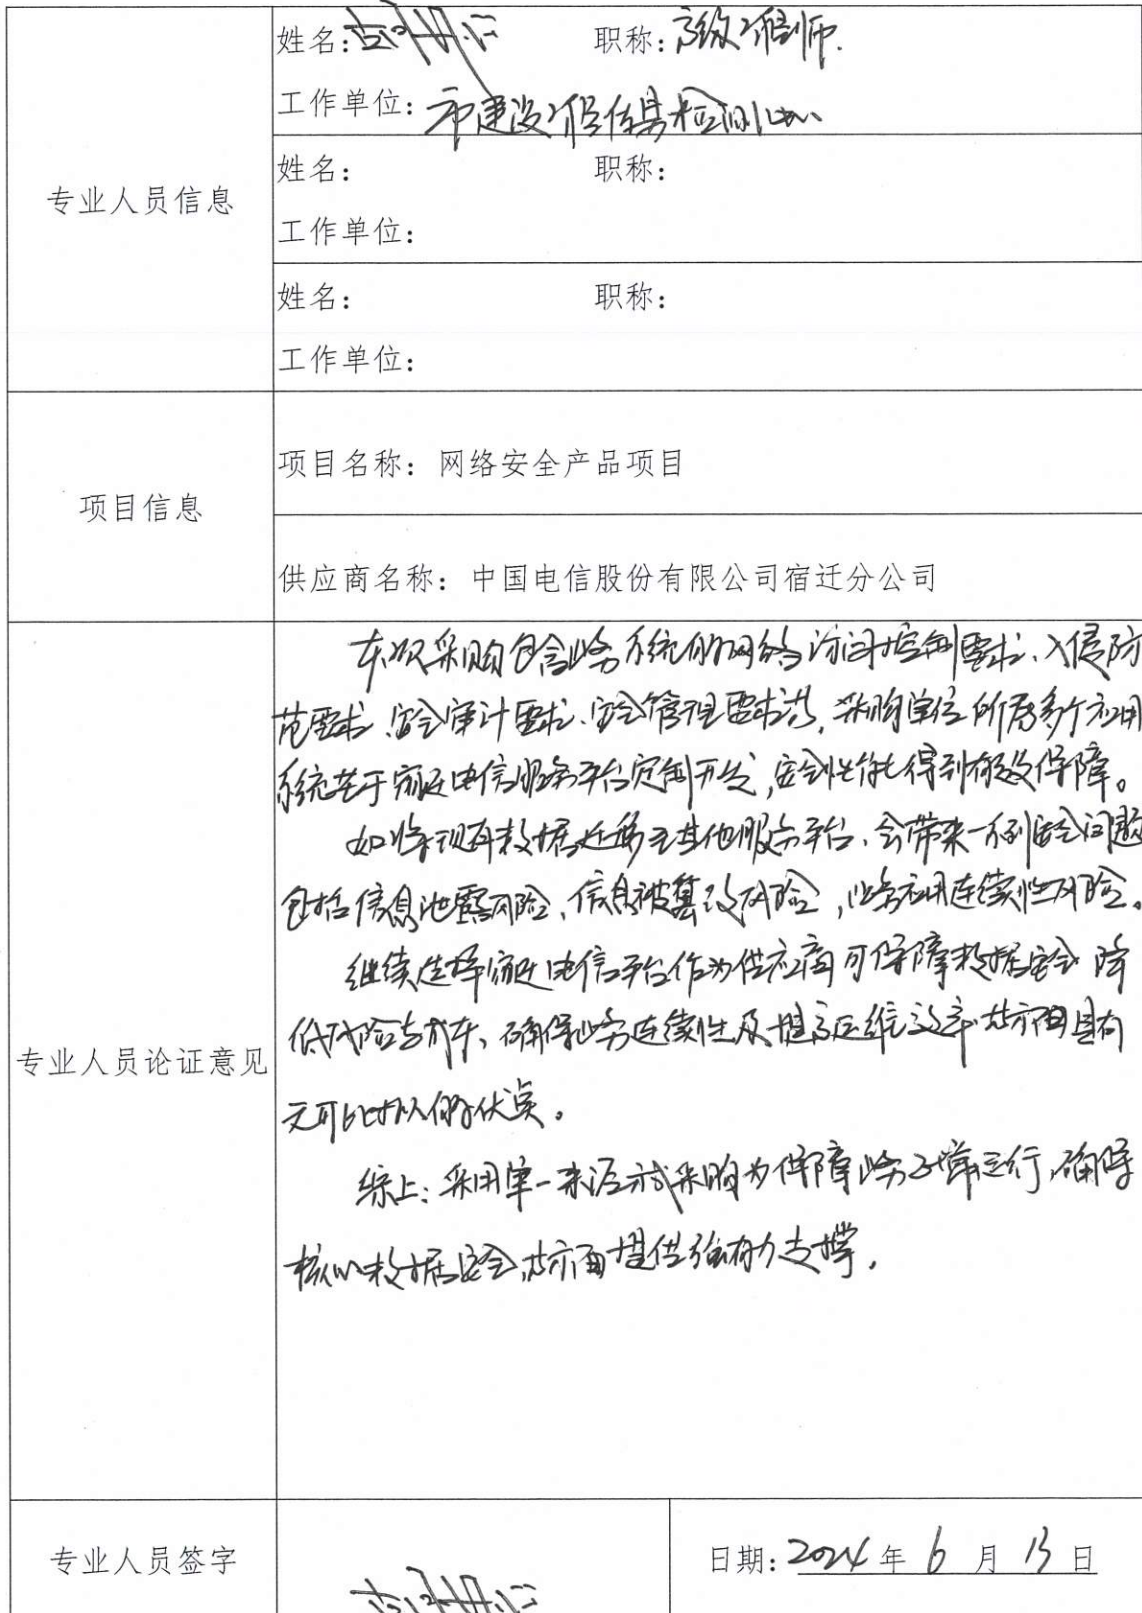 姓名: 职称:高级工程师.
工作单位:市建设工程质量检测中心
专业人员信息
姓名: 职称:
工作单位:
姓名: 职称:
工作单位:
项目信息
项目名称:网络安全产品项目
供应商名称:中国电信股份有限公司宿迁分公司
专业人员论证意见
本次采购包含业务系统的网络访问控制要求、入侵防
范要求、安全审计要求、安全管理要求等,采购单位所属多个应用
系统基于宿迁电信服务平台定制开发,安全性能得到有效保障。
如将现有数据迁移至其他服务平台、会带来一系列安全问题
包括信息泄露风险、信息被篡改风险,业务应用连续性风险。
继续选择宿迁电信平台作为供应商可保障数据安全 降
低风险与成本、确保业务连续性及提高运维效率等方面具有
无可比拟的优点。
综上:采用单一来源方式采购为保障业务正常运行,确保
核心数据安全,等方面提供强有力支撑。
专业人员签字
日期:2024年6月13日